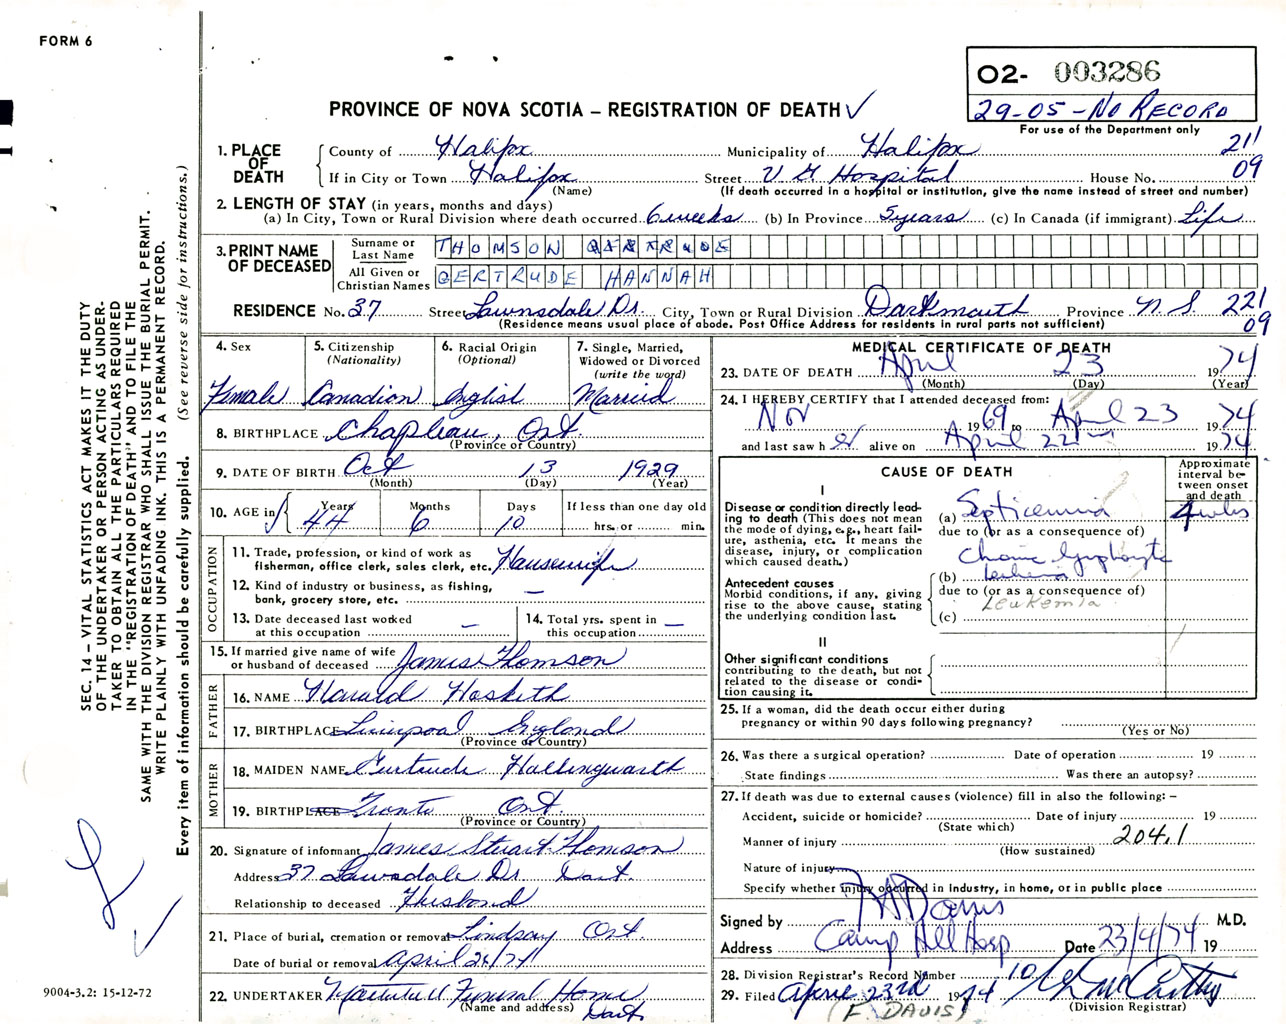 FORM 6
O2- 003286
29-05-NO RECORD
For use of the Department only
PROVINCE OF NOVA SCOTIA – REGISTRATION OF DEATH ✓
1. PLACE OF DEATH
County of Halifax Municipality of Halifax 211
If in City or Town Halifax Street V G Hospital House No. 09
(Name) (If death occurred in a hospital or institution, give the name instead of street and number)
2. LENGTH OF STAY (in years, months and days)
(a) In City, Town or Rural Division where death occurred 6 weeks (b) In Province 5 years (c) In Canada (if immigrant) Life
3. PRINT NAME OF DECEASED
Surname or Last Name THOMSON GERTRUDE
All Given or Christian Names GERTRUDE HANNAH
RESIDENCE No. 37 Street Lawnsdale Dr. City, Town or Rural Division Dartmouth Province N.S. 221
(Residence means usual place of abode. Post Office Address for residents in rural parts not sufficient) 09
4. Sex Female
5. Citizenship (Nationality) Canadian
6. Racial Origin (Optional) English
7. Single, Married, Widowed or Divorced (write the word) Married
8. BIRTHPLACE Chapleau, Ont.
(Province or Country)
9. DATE OF BIRTH Oct 13 1929
(Month) (Day) (Year)
10. AGE in Years 44 Months 6 Days 10 If less than one day old
hrs. or min.
OCCUPATION
11. Trade, profession, or kind of work as fisherman, office clerk, sales clerk, etc. Housewife
12. Kind of industry or business, as fishing, bank, grocery store, etc. —
13. Date deceased last worked at this occupation —
14. Total yrs. spent in this occupation —
15. If married give name of wife or husband of deceased James Thomson
FATHER
16. NAME Harold Hesketh
17. BIRTHPLACE Liverpool England
(Province or Country)
MOTHER
18. MAIDEN NAME Gertrude Hollingworth
19. BIRTHPLACE Toronto Ont.
(Province or Country)
20. Signature of informant James Stuart Thomson
Address 37 Lawnsdale Dr Dart.
Relationship to deceased Husband
21. Place of burial, cremation or removal Lindsay Ont.
Date of burial or removal April 26/74
22. UNDERTAKER Funeral Home
(Name and address) Dart
MEDICAL CERTIFICATE OF DEATH
23. DATE OF DEATH April 23 1974
(Month) (Day) (Year)
24. I HEREBY CERTIFY that I attended deceased from:
Nov 1969 to April 23 1974
and last saw h er alive on April 22nd 1974
CAUSE OF DEATH
Approximate interval between onset and death
I
Disease or condition directly leading to death (This does not mean the mode of dying, e.g., heart failure, asthenia, etc. It means the disease, injury, or complication which caused death.)
(a) Septicemia 4 wks
due to (or as a consequence of)
Antecedent causes
Morbid conditions, if any, giving rise to the above cause, stating the underlying condition last.
Chronic lymphocytic
(b) leukemia
due to (or as a consequence of)
Leukemia
(c)
II
Other significant conditions
contributing to the death, but not related to the disease or condition causing it.
25. If a woman, did the death occur either during pregnancy or within 90 days following pregnancy?
(Yes or No)
26. Was there a surgical operation? Date of operation 19
State findings Was there an autopsy?
27. If death was due to external causes (violence) fill in also the following: –
Accident, suicide or homicide? Date of injury 19
(State which) 204.1
Manner of injury
(How sustained)
Nature of injury
Specify whether injury occurred in industry, in home, or in public place
Signed by Davis M.D.
Address Camp Hill Hosp Date 23/4/74 19
28. Division Registrar's Record Number 10
29. Filed April 23rd 1974 McCarthy
(F. DAVIS) (Division Registrar)
SEC. 14 – VITAL STATISTICS ACT MAKES IT THE DUTY
OF THE UNDERTAKER OR PERSON ACTING AS UNDER-
TAKER TO OBTAIN ALL THE PARTICULARS REQUIRED
IN THE "REGISTRATION OF DEATH" AND TO FILE THE
SAME WITH THE DIVISION REGISTRAR WHO SHALL ISSUE THE BURIAL PERMIT.
WRITE PLAINLY WITH UNFADING INK. THIS IS A PERMANENT RECORD.
Every item of information should be carefully supplied. (See reverse side for instructions.)
9004-3.2: 15-12-72